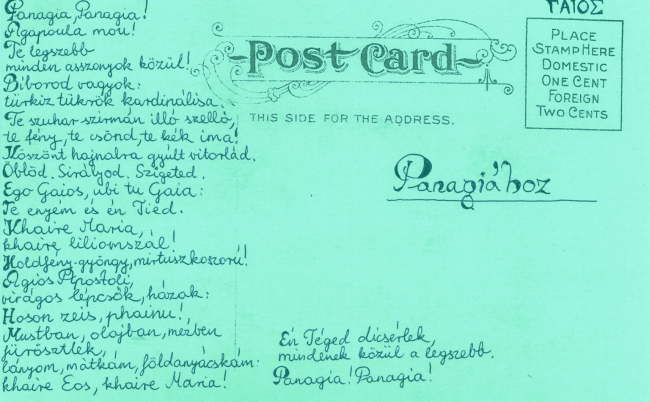 Panagia, Panagia!
Agapoula mou!
Te legszebb
minden asszonyok közül!
Bíborod vagyok:
türkiz tükrök kardinálisa.
Te szuhar-szirmán illó szellő,
te fény, te csönd, te kék ima!
Köszönt hajnalra gyúlt vitorlád.
Öblöd. Sirályod. Szigeted.
Ego Gaios, ubi tu Gaia:
Te enyém és én Tied.
Khaire Maria,
khaire liliomszál!
Holdfény-gyöngy, mirtuszkoszorú!
Agios Apostoli,
virágos lépcsők, házak:
Hoson zeis, phainu!
Mustban, olajban, mézben
fürösztlek,
lányom, mátkám, földanyácskám:
khaire Eos, khaire Maria!
Post Card
THIS SIDE FOR THE ADDRESS.
ΓΑΙΟΣ
PLACE
STAMP HERE
DOMESTIC
ONE CENT
FOREIGN
TWO CENTS
Panagiához
Én Téged dicsérlek,
mindenek közül a legszebb.
Panagia! Panagia!